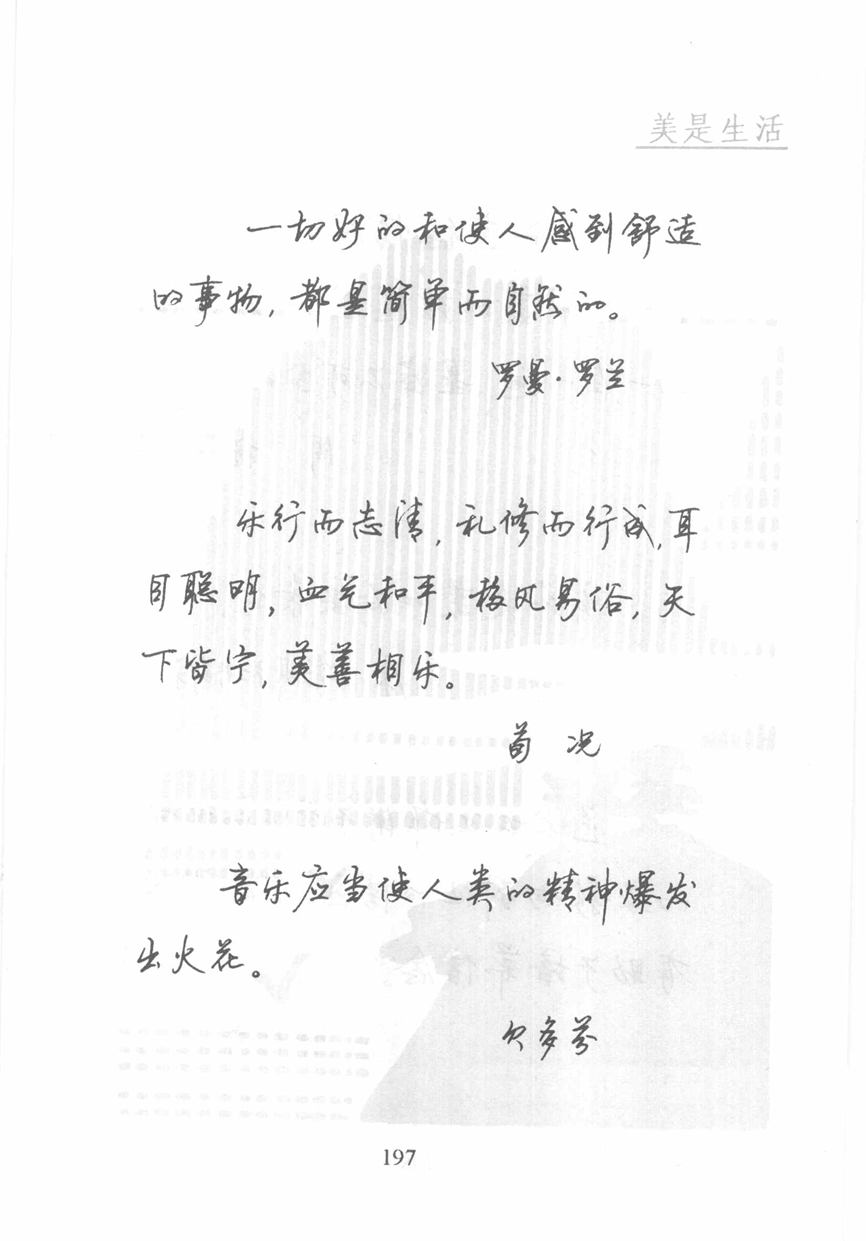 美是生活
一切好的和使人感到舒适
的事物，都是简单而自然的。
罗曼·罗兰
乐行而志清，礼修而行成，耳
目聪明，血气和平，移风易俗，天
下皆宁，美善相乐。
荀况
音乐应当使人类的精神爆发
出火花。
贝多芬
197